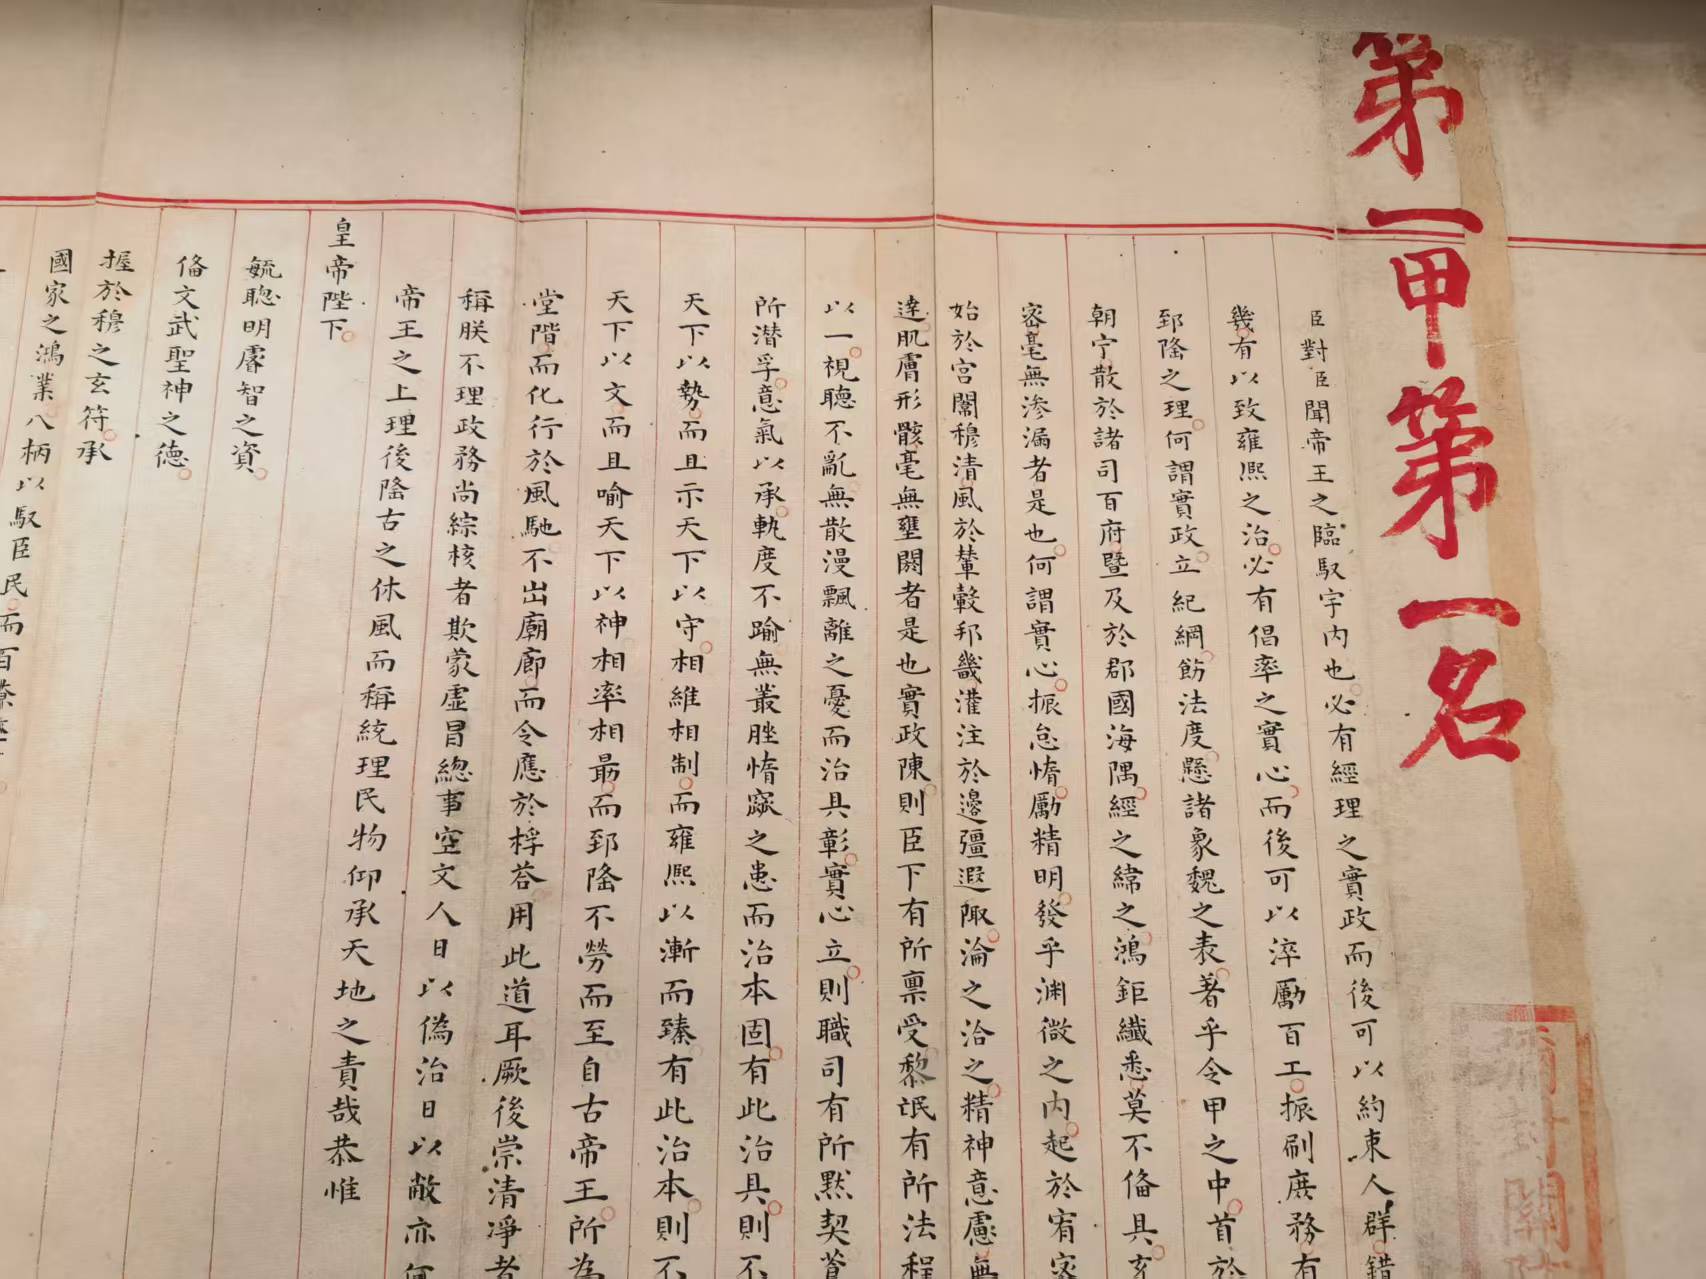 第一甲第一名
臣對臣聞帝王之臨馭宇内也必有經理之實政而後可以約束人群錯
幾有以致雍熙之治必有倡率之實心而後可以淬勵百工振刷庶務有
郅隆之理何謂實政立紀綱飭法度懸諸象魏之表著乎令甲之中首於
朝宁散於諸司百府暨及於郡國海隅經之緯之鴻鉅纖悉莫不俻具玄
宻毫無滲漏者是也何謂實心振怠惰勵精明發乎渊微之内起於宥宻
始於宫闈穆清風於輦轂邦畿灌注於邊疆遐陬淪之洽之精神意慮無
逹肌膚形骸毫無壅閼者是也實政陳則臣下有所禀受黎氓有所法程
以一視聽不亂無散漫飄離之憂而治具彰實心立則職司有所黙契蒼
所潜孚意氣以承軌度不踰無叢脞惰窳之患而治本固有此治具則不
天下以勢而且示天下以守相維相制而雍熈以漸而臻有此治本則不
天下以文而且喻天下以神相率相最而郅隆不勞而至自古帝王所為
堂階而化行於風馳不出廟廊而令應於桴荅用此道耳厥後崇清凈者
稱朕不理政務尚綜核者欺蒙虚冒總事空文人日以偽治日以敝亦何
帝王之上理後隆古之休風而稱統理民物仰承天地之責哉恭惟
皇帝陛下
毓聰明睿智之資
俻文武聖神之德
握於穆之玄符承
國家之鴻業八柄以馭臣民而百